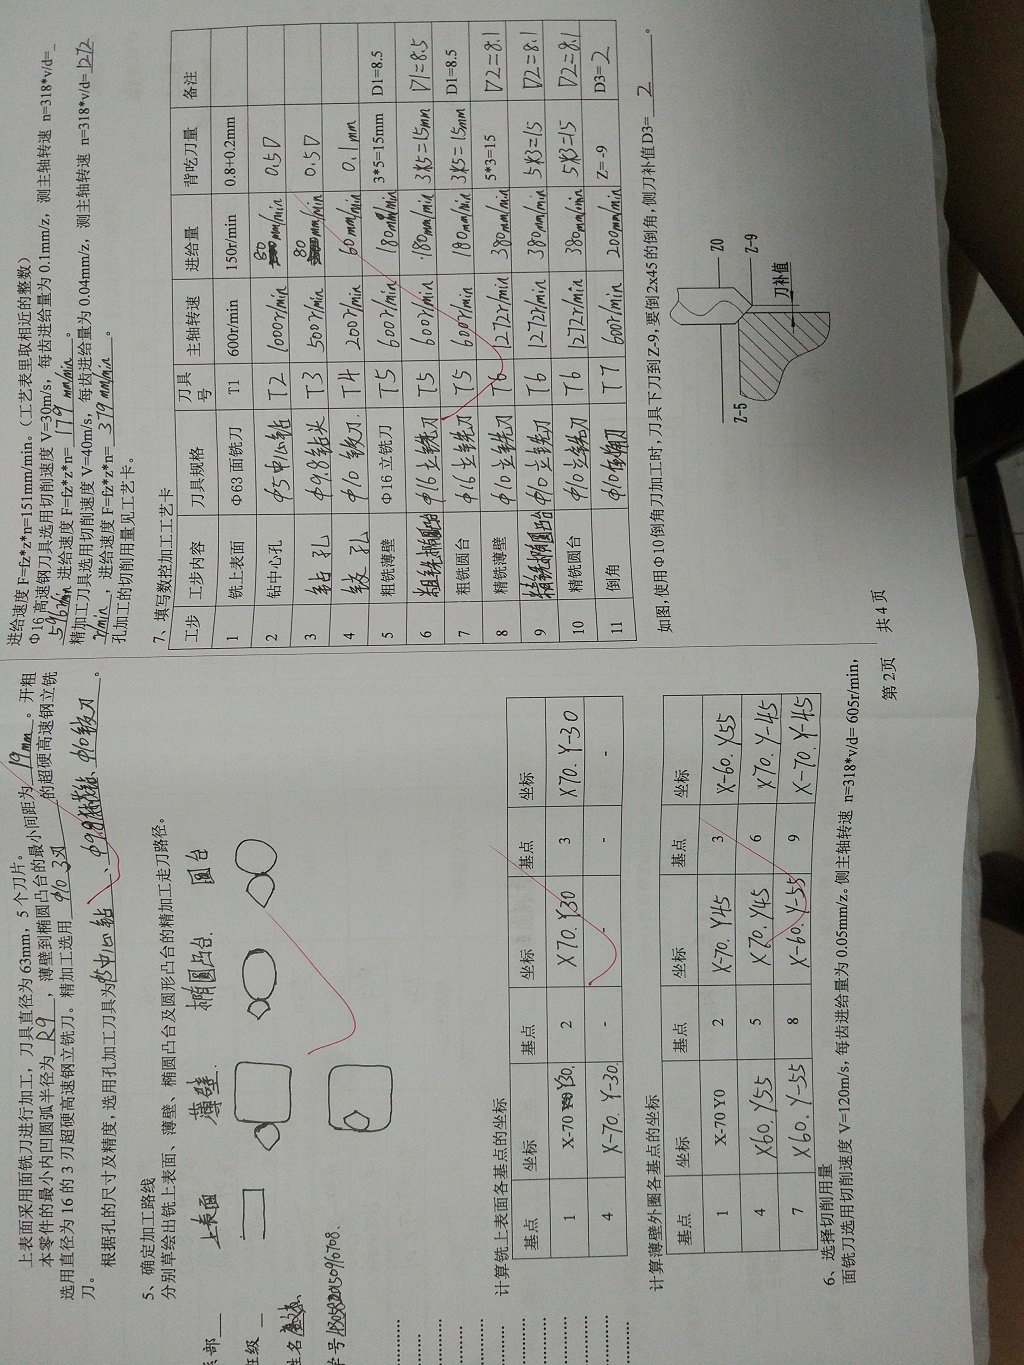 上表面采用面铣刀进行加工，刀具直径为 63mm，5 个刀片。
本零件的最小内凹圆弧半径为 R9 ，薄壁到椭圆凸台的最小间距为 19mm 。开粗
选用直径为 16 的 3 刃超硬高速钢立铣刀。精加工选用 φ10 3刃 的超硬高速钢立铣
刀。
根据孔的尺寸及精度，选用孔加工刀具为 φ5中心钻 、 φ9.8 、φ10铰刀 。
5、确定加工路线
分别草绘出铣上表面、薄壁、椭圆凸台及圆形凸台的精加工走刀路径。
上表面 薄壁. 椭圆凸台. 圆台
系部
班级
姓名
学号
计算铣上表面各基点的坐标
基点 坐标 基点 坐标 基点 坐标
1 X-70 Y30. 2 X70. Y30 3 X70. Y-30
4 X-70. Y-30. - - - -
计算薄壁外圈各基点的坐标
基点 坐标 基点 坐标 基点 坐标
1 X-70 Y0 2 X-70. Y45 3 X-60. Y55
4 X60. Y55 5 X70. Y45 6 X70. Y-45
7 X60. Y-55 8 X-60. Y-55 9 X-70. Y-45
6、选择切削用量
面铣刀选用切削速度 V=120m/s，每齿进给量为 0.05mm/z。侧主轴转速 n=318*v/d= 605r/min，
第 2页
进给速度 F=fz*z*n=151mm/min。（工艺表里取相近的整数）
Φ16 高速钢刀具选用切削速度 V=30m/s，每齿进给量为 0.1mm/z，测主轴转速 n=318*v/d=
596r/min 进给速度 F=fz*z*n= 179 mm/min 。
精加工刀具选用切削速度 V=40m/s，每齿进给量为 0.04mm/z，测主轴转速 n=318*v/d= 1272
r/min ，进给速度 F=fz*z*n= 379 mm/min 。
孔加工的切削用量见工艺卡。
7、填写数控加工工艺卡
工步 工步内容 刀具规格 刀具号 主轴转速 进给量 背吃刀量 备注
1 铣上表面 Φ63 面铣刀 T1 600r/min 150r/min 0.8+0.2mm
2 钻中心孔 φ5中心钻 T2 1000r/min 80 mm/min 0.5D
3 钻孔 φ9.8钻头 T3 500r/min 80 mm/min 0.5D
4 铰孔 φ10 铰刀. T4 200r/min 60mm/min 0.1mm
5 粗铣薄壁 Φ16 立铣刀 T5 600r/min 180mm/min 3*5=15mm D1=8.5
6 粗铣椭圆凸台 φ16立铣刀 T5 600r/min 180mm/min 3X5=15mm D1=8.5
7 粗铣圆台 φ16立铣刀 T5 600r/min 180mm/min 3X5=15mm D1=8.5
8 精铣薄壁 φ10立铣刀 T6 1272r/min 380mm/min 5*3=15 D2=8.1
9 精铣椭圆凸台 φ10立铣刀 T6 1272r/min 380mm/min 5X3=15 D2=8.1
10 精铣圆台 φ10立铣刀 T6 1272r/min 380mm/min 5X3=15 D2=8.1
11 倒角 φ10倒角刀 T7 600r/min 200mm/min Z=-9 D3= 2
如图,使用Φ10倒角刀加工时,刀具下刀到 Z-9,要倒 2x45 的倒角,侧刀补值 D3= 2 。
Z0
Z-5
Z-9
刀补值
共 4 页